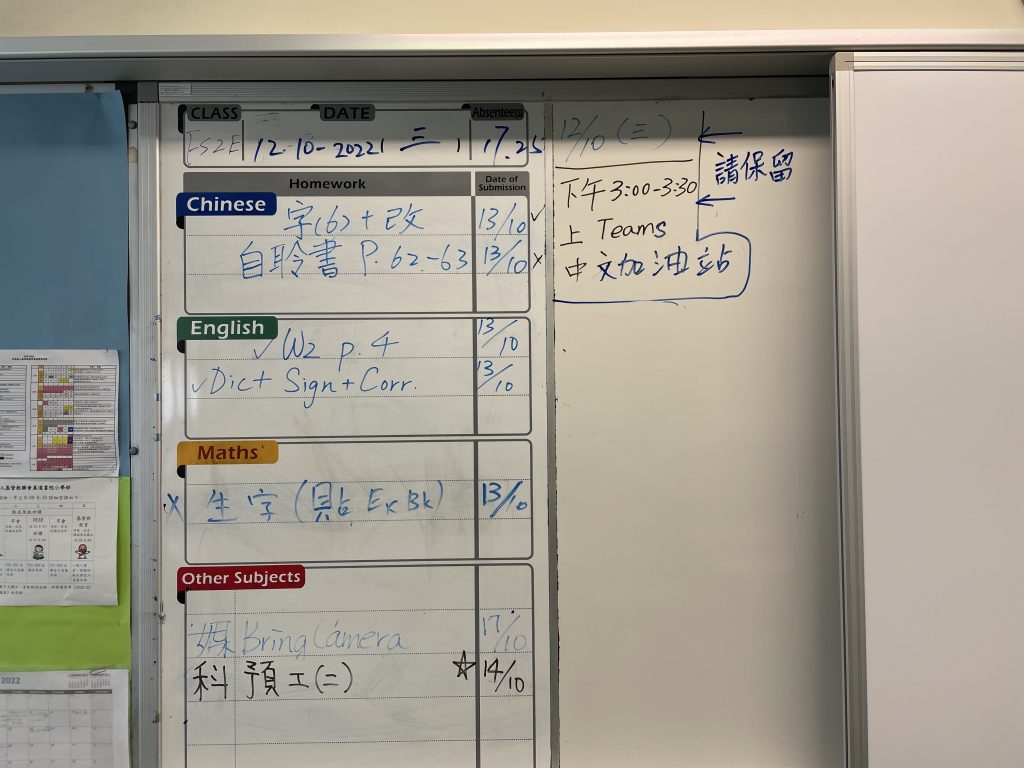 CLASS DATE Absentees
12-10-2022 三 17.25
Homework Date of Submission
Chinese
字(6)+改 13/10 ✓
自聆書 P.62-63 13/10 x
English
✓ W2 p.4 13/10
✓ Dict Sign + Corr. 13/10
Maths
X 生字(貼 Ex Bk) 13/10
Other Subjects
媒 Bring Camera 17/10
科 預工(二) ☆ 14/10
12/10 (三)
下午 3:00-3:30
上 Teams
中文加油站
請保留
2022